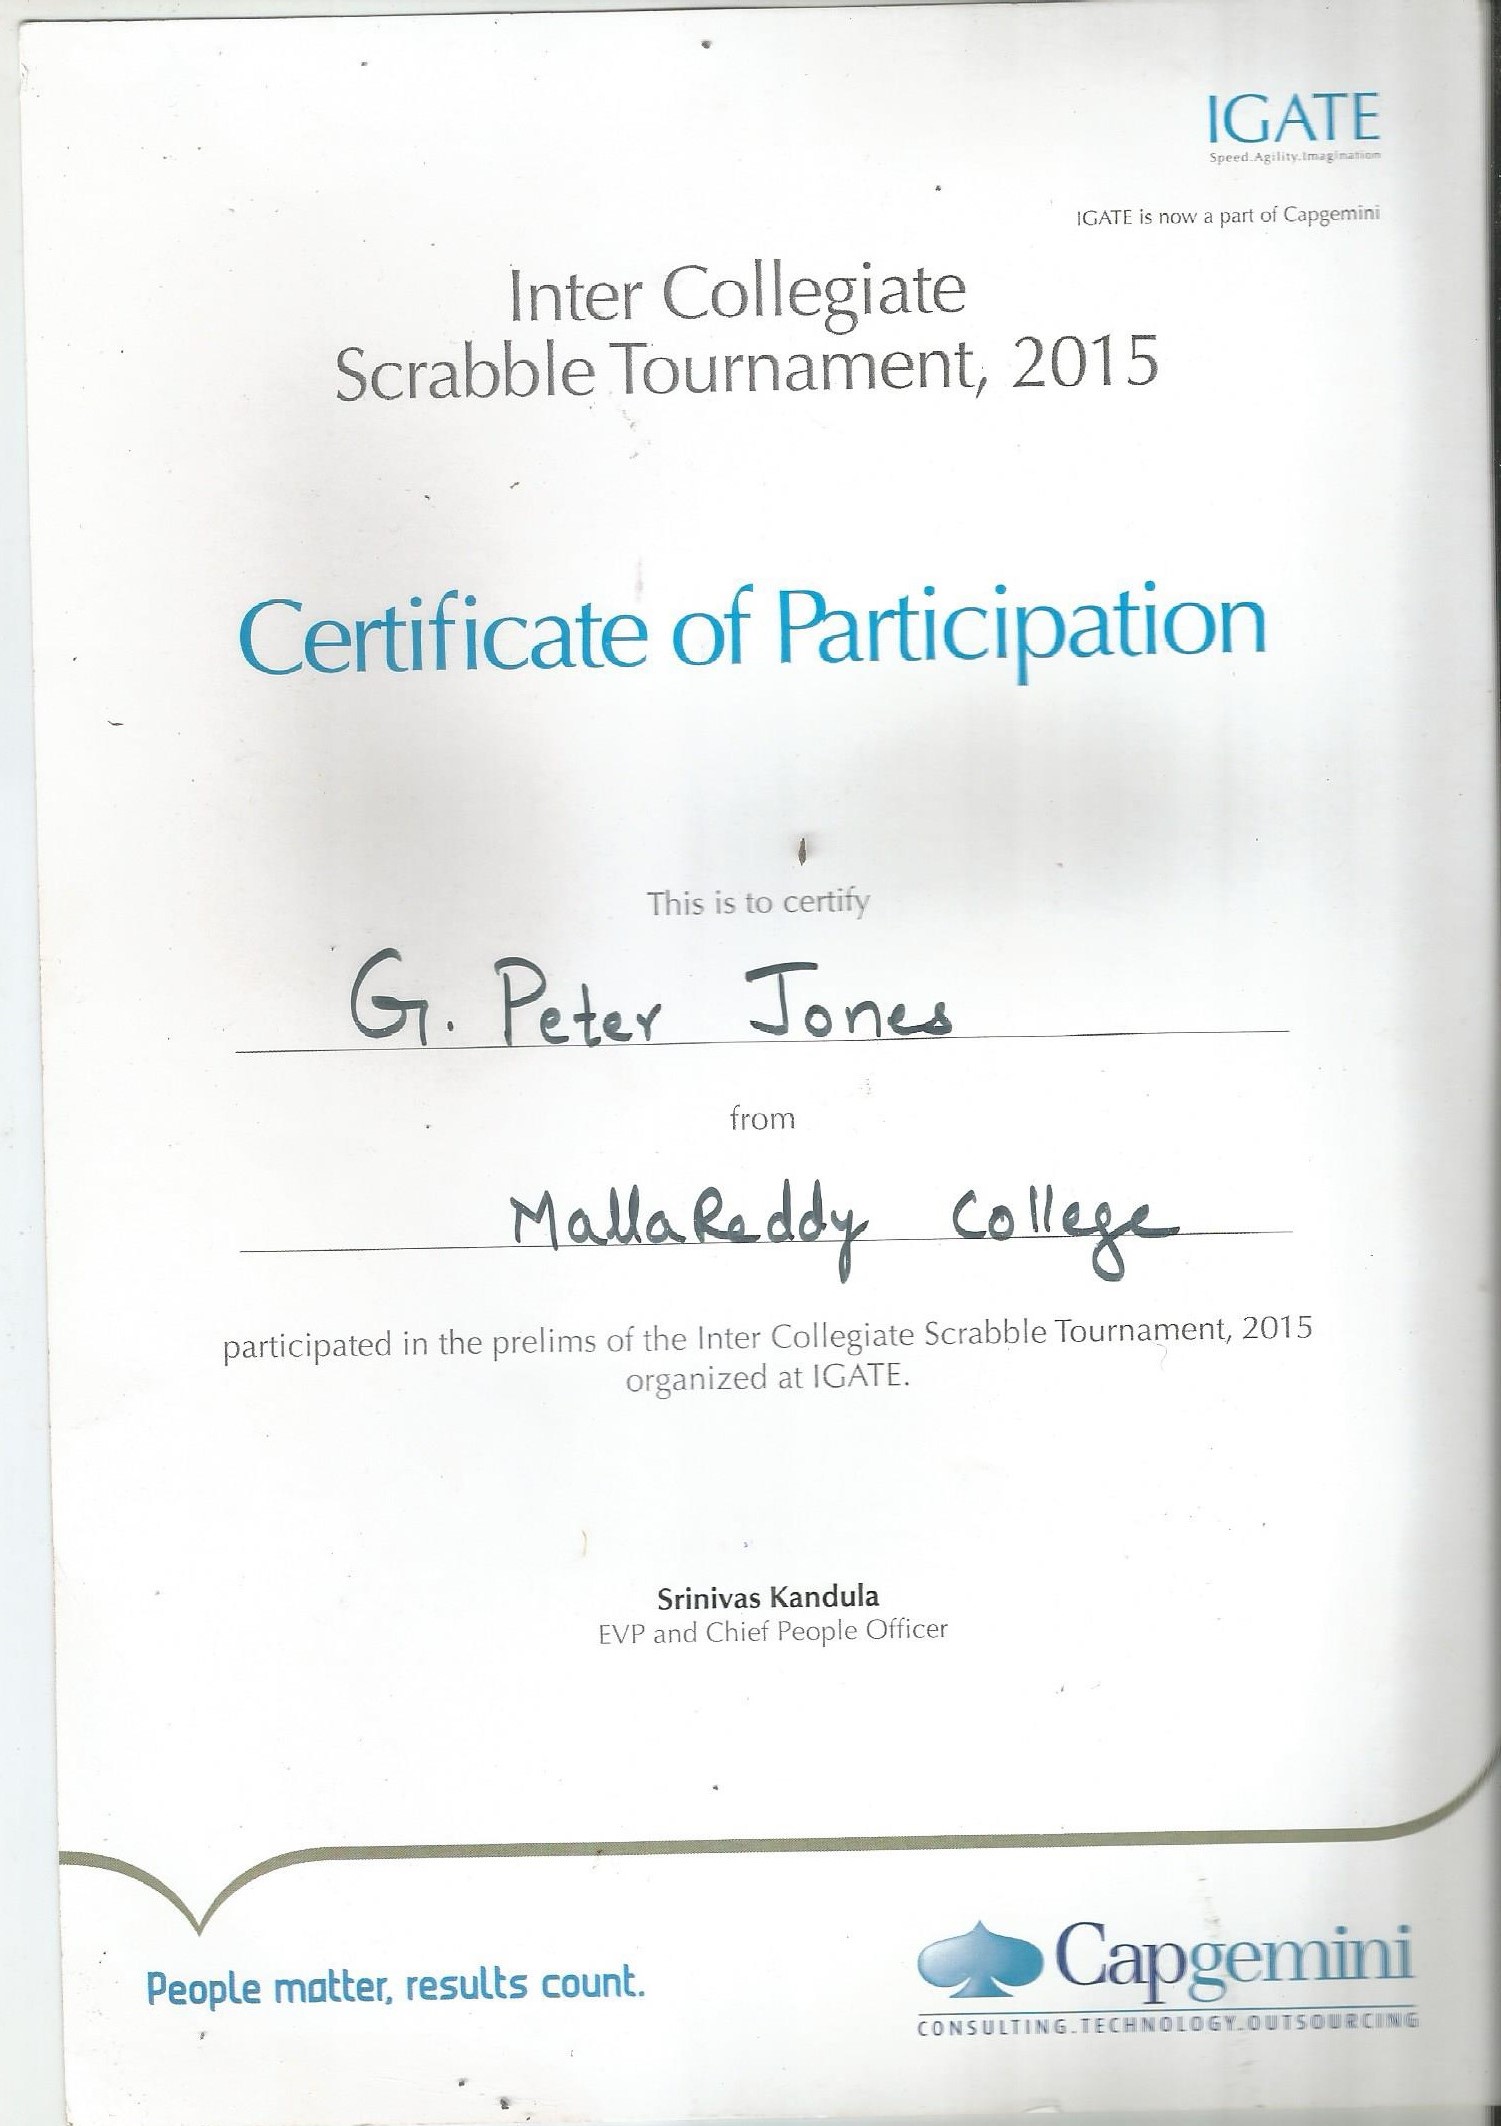 IGATE
Speed.Agility.Imagination
IGATE is now a part of Capgemini
Inter Collegiate
Scrabble Tournament, 2015
Certificate of Participation
This is to certify
G. Peter Jones
from
MallaReddy College
participated in the prelims of the Inter Collegiate Scrabble Tournament, 2015
organized at IGATE.
Srinivas Kandula
EVP and Chief People Officer
People matter, results count.
Capgemini
CONSULTING.TECHNOLOGY.OUTSOURCING